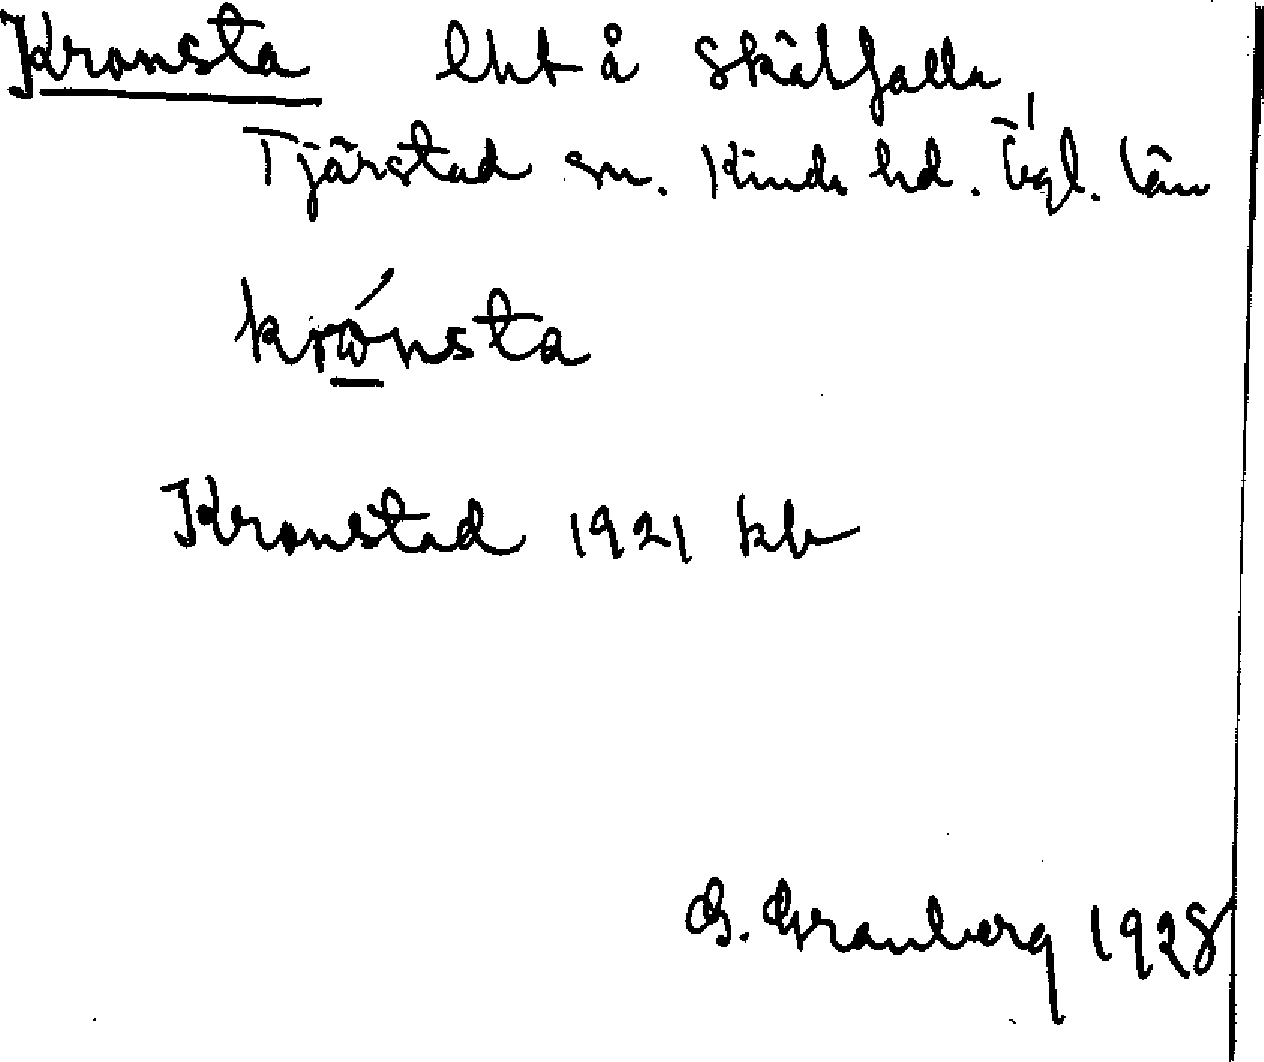 Kronsta lht å Skälfalla,
Tjärstad sn. Kinds hd. Ögl. län
krώnsta
Kronstad 1921 kb
G. Granberg 1928